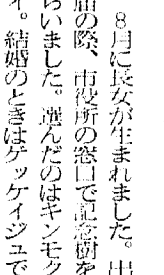 8月に長女が生まれました。出
届の際、市役所の窓口で記念樹を
らいました。選んだのはキンモク
イ。結婚のときはゲッケイジュで